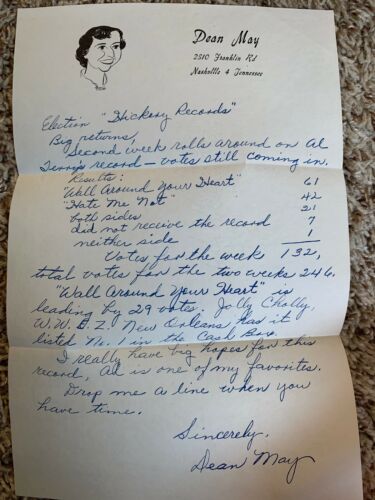 Dean May
2310 Franklin Rd
Nashville 4 Tennessee
Election "Hickory Records"
Big returns,
Second week rolls around on Al
Terry's record — votes still coming in.
Results:
"Wall Around Your Heart" 61
"Hate Me Not" 42
both sides 21
did not receive the record 7
neither side 1
Votes for the week 132,
total votes for the two weeks 246.
"Wall Around Your Heart" is
leading by 29 votes. Jolly Cholly,
W.W.E.Z. New Orleans, has it
listed No. 1 in the Cash Box.
I really have big hopes for this
record, Al is one of my favorites.
Drop me a line when you
have time.
Sincerely,
Dean May